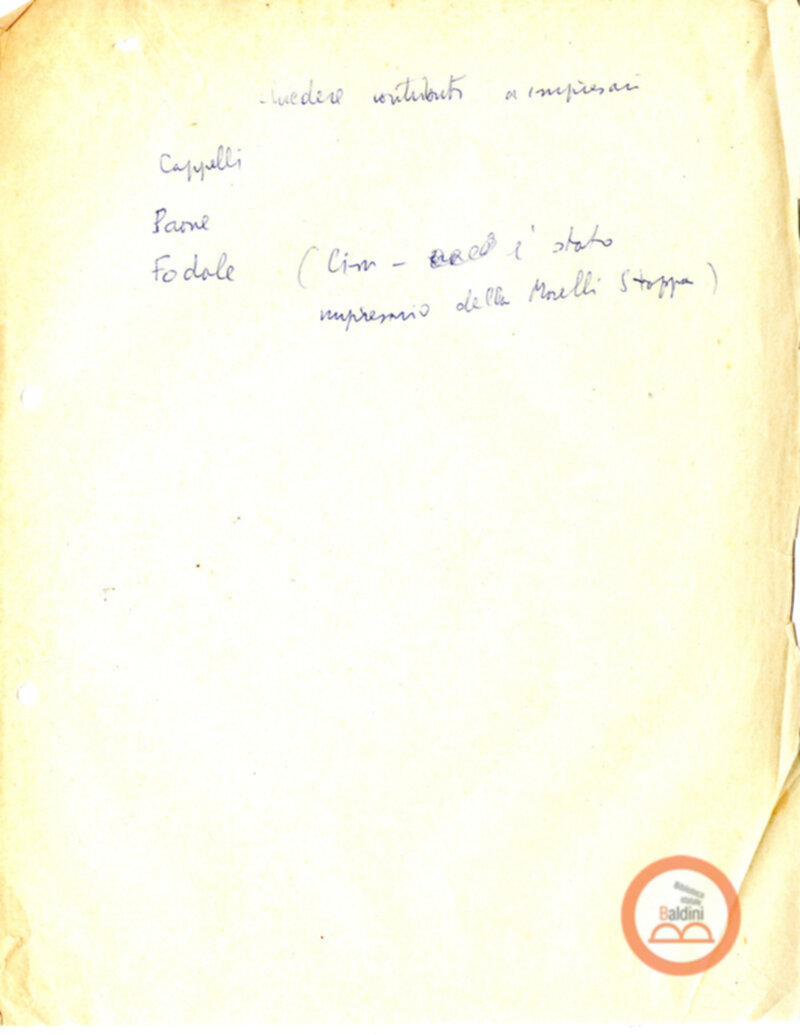 chiedere contributi a impresari
Cappelli
Paone
Fodale (Cim - è stato
impresario della Morelli Stoppa)
Biblioteca
statale
Baldini